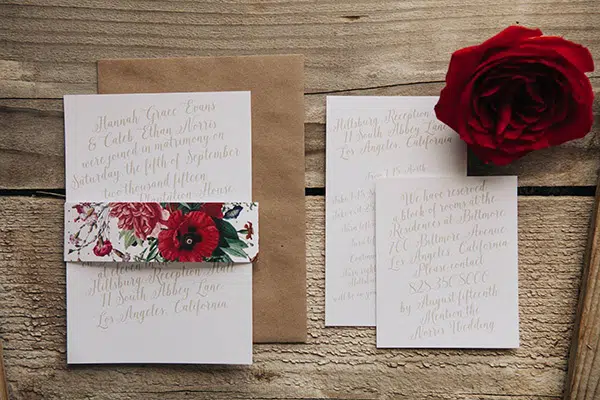 Hannah Grace Evans
& Caleb Ethan Norris
were joined in matrimony on
Saturday, the fifth of September
two thousand fifteen
Plantation House
at eleven
Hillsburg Reception Hall
11 South Abbey Lane
Los Angeles, California
Hillsburg Reception
11 South Abbey Lane
Los Angeles, California
North
Take
Take
right
will be on
We have reserved
a block of rooms at the
Residences at Biltmore
200 Biltmore Avenue
Los Angeles, California
Please contact
828.350.8000
by August fifteenth
Mention the
Norris Wedding